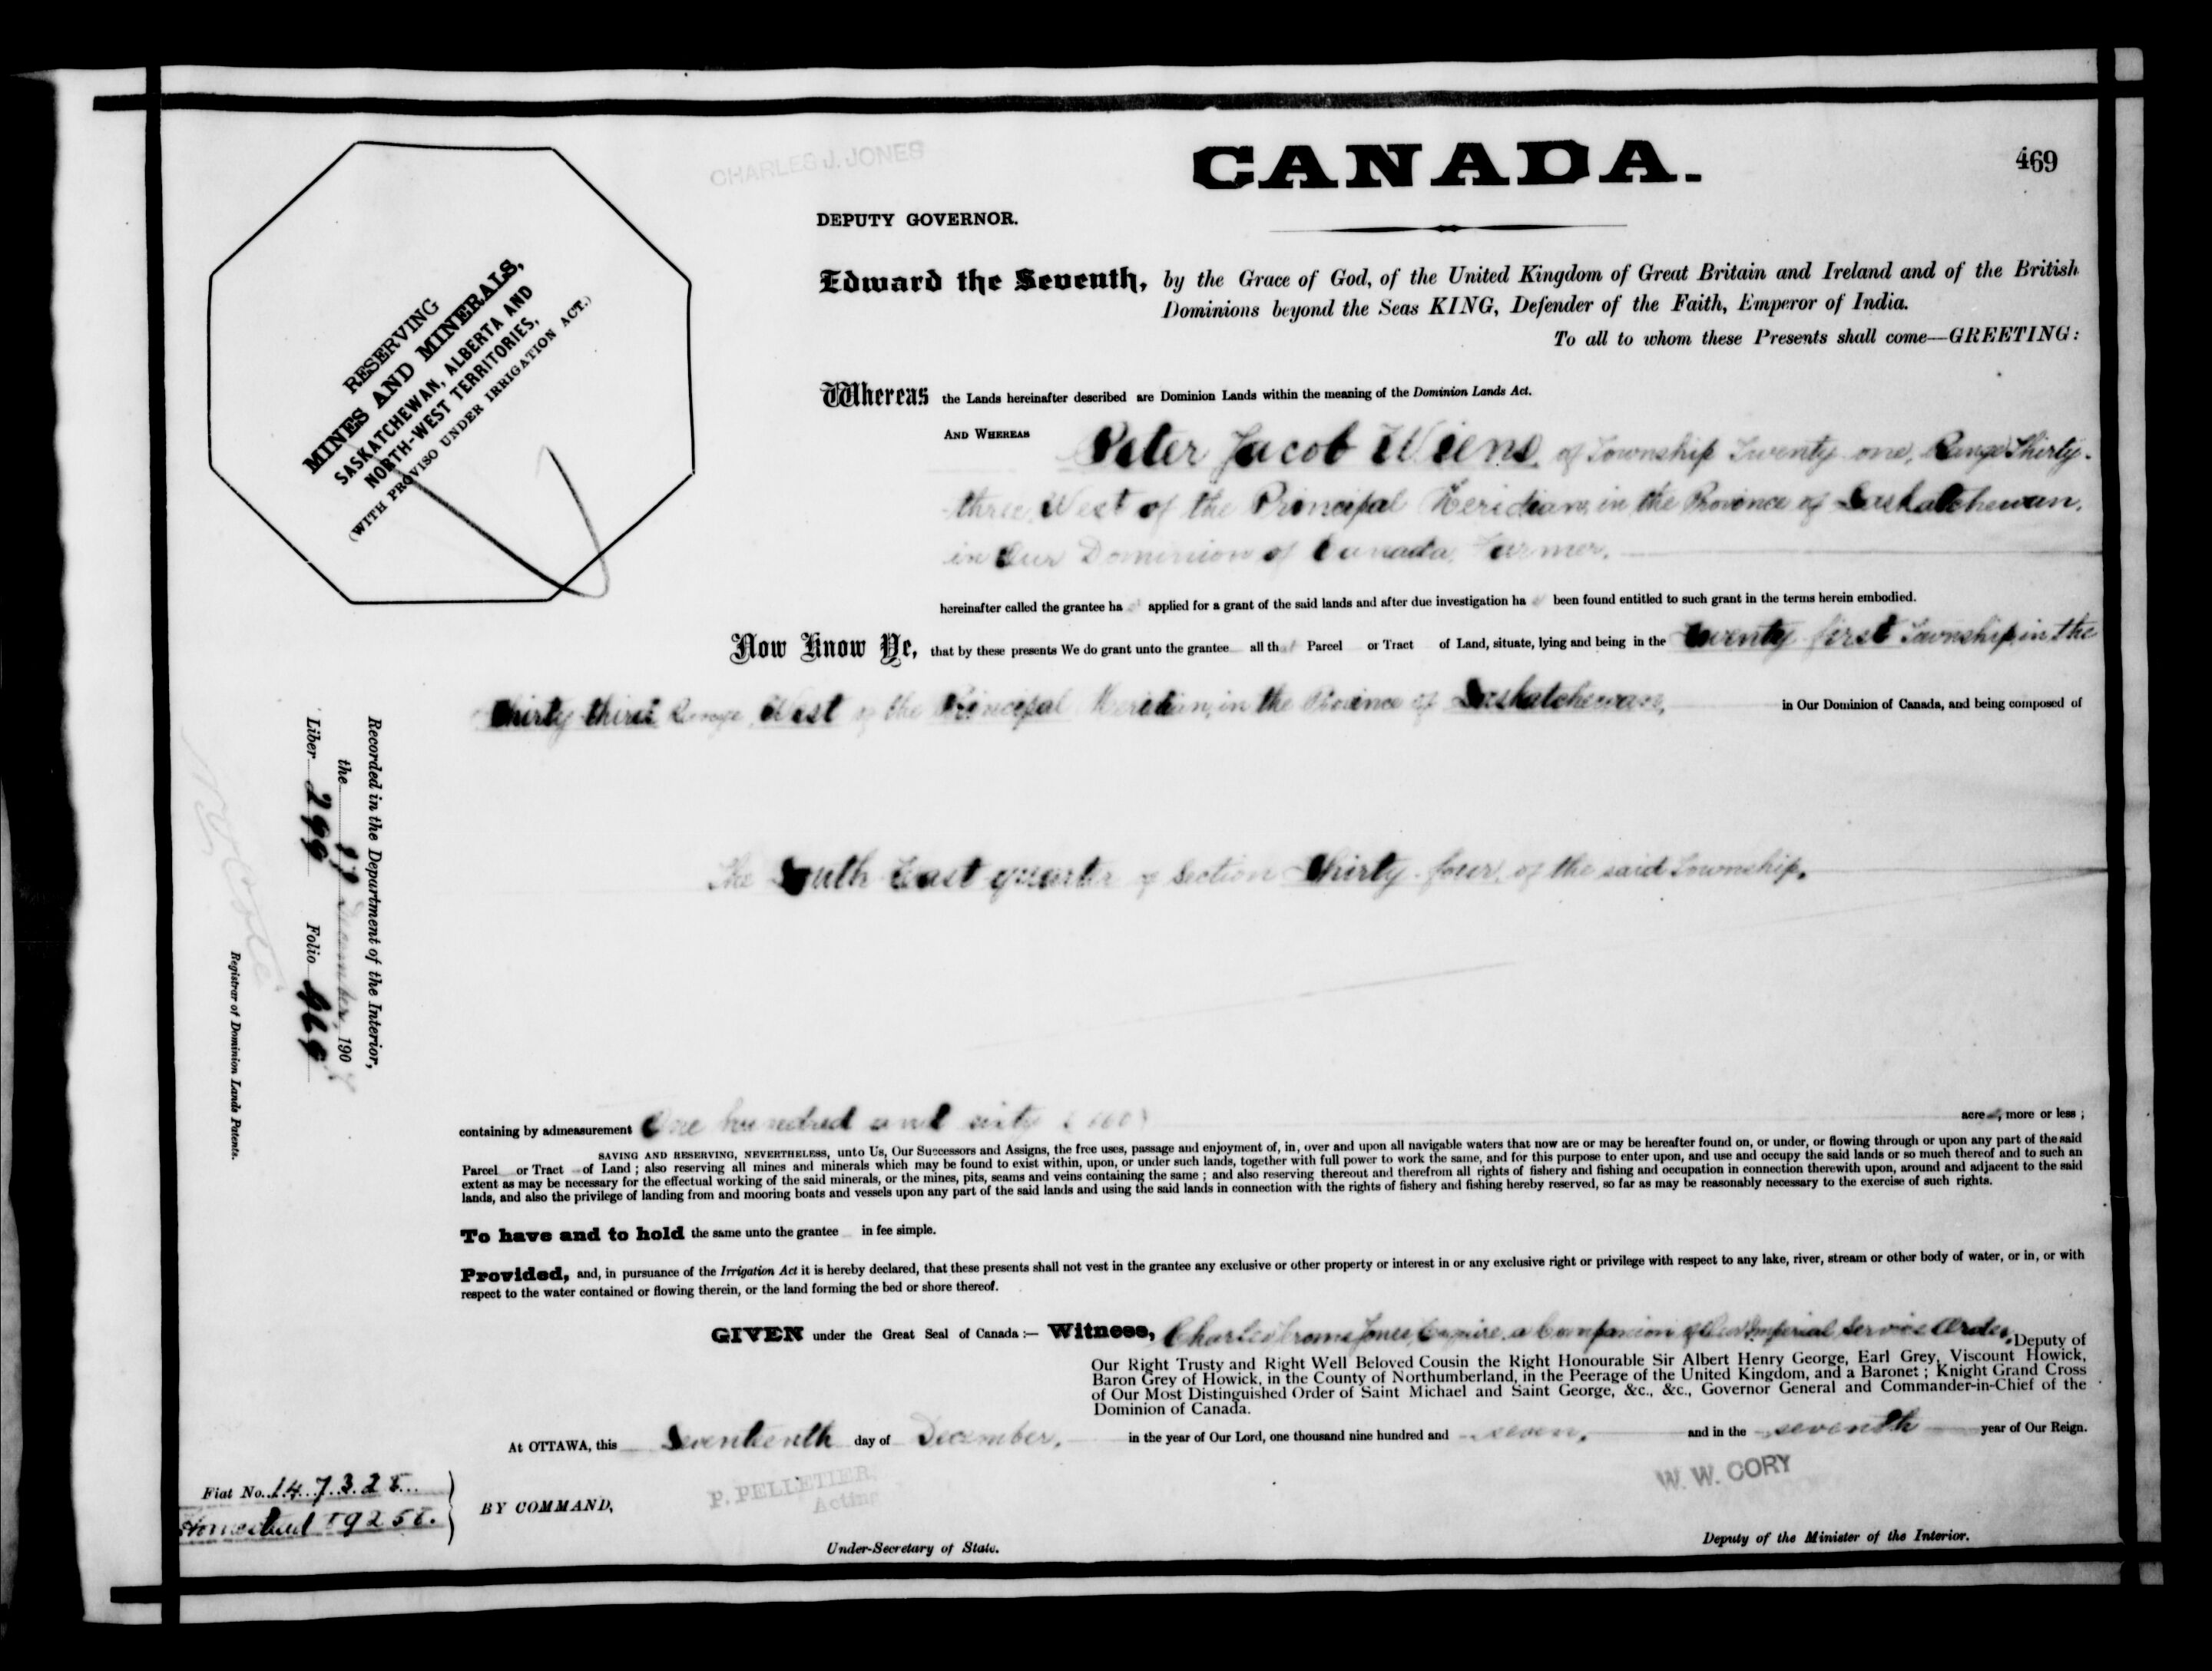 CHARLES J. JONES
CANADA.
469
DEPUTY GOVERNOR.
RESERVING
MINES AND MINERALS,
SASKATCHEWAN, ALBERTA AND
NORTH-WEST TERRITORIES,
(WITH PROVISO UNDER IRRIGATION ACT.)
Edward the Seventh, by the Grace of God, of the United Kingdom of Great Britain and Ireland and of the British
Dominions beyond the Seas KING, Defender of the Faith, Emperor of India.
To all to whom these Presents shall come—GREETING:
Whereas the Lands hereinafter described are Dominion Lands within the meaning of the Dominion Lands Act.
AND WHEREAS Peter Jacob Wiens, of Township Twenty one, Range Thirty-
three, West of the Principal Meridian, in the Province of Saskatchewan,
in Our Dominion of Canada, Farmer,
hereinafter called the grantee ha applied for a grant of the said lands and after due investigation ha been found entitled to such grant in the terms herein embodied.
Now Know Ye, that by these presents We do grant unto the grantee all th Parcel or Tract of Land, situate, lying and being in the Twenty first Township in the
Thirty third Range, West of the Principal Meridian, in the Province of Saskatchewan, in Our Dominion of Canada, and being composed of
The South East quarter of Section Thirty-four, of the said Township.
Recorded in the Department of the Interior,
the December, 190
Liber 299 Folio 469
Registrar of Dominion Lands Patents.
containing by admeasurement One hundred and sixty (160) acres, more or less ;
SAVING AND RESERVING, NEVERTHELESS, unto Us, Our Successors and Assigns, the free uses, passage and enjoyment of, in, over and upon all navigable waters that now are or may be hereafter found on, or under, or flowing through or upon any part of the said
Parcel or Tract of Land ; also reserving all mines and minerals which may be found to exist within, upon, or under such lands, together with full power to work the same, and for this purpose to enter upon, and use and occupy the said lands or so much thereof and to such an
extent as may be necessary for the effectual working of the said minerals, or the mines, pits, seams and veins containing the same ; and also reserving thereout and therefrom all rights of fishery and fishing and occupation in connection therewith upon, around and adjacent to the said
lands, and also the privilege of landing from and mooring boats and vessels upon any part of the said lands and using the said lands in connection with the rights of fishery and fishing hereby reserved, so far as may be reasonably necessary to the exercise of such rights.
To have and to hold the same unto the grantee in fee simple.
Provided, and, in pursuance of the Irrigation Act it is hereby declared, that these presents shall not vest in the grantee any exclusive or other property or interest in or any exclusive right or privilege with respect to any lake, river, stream or other body of water, or in, or with
respect to the water contained or flowing therein, or the land forming the bed or shore thereof.
GIVEN under the Great Seal of Canada :— Witness, Charles Jerome Jones, Esquire, a Companion of the Imperial Service Order, Deputy of
Our Right Trusty and Right Well Beloved Cousin the Right Honourable Sir Albert Henry George, Earl Grey, Viscount Howick,
Baron Grey of Howick, in the County of Northumberland, in the Peerage of the United Kingdom, and a Baronet ; Knight Grand Cross
of Our Most Distinguished Order of Saint Michael and Saint George, &c., &c., Governor General and Commander-in-Chief of the
Dominion of Canada.
At OTTAWA, this Seventeenth day of December, in the year of Our Lord, one thousand nine hundred and seven, and in the seventh year of Our Reign.
Fiat No. 147328
Homestead 89258.
BY COMMAND,
P. PELLETIER,
Acting
Under-Secretary of State.
W. W. CORY
Deputy of the Minister of the Interior.